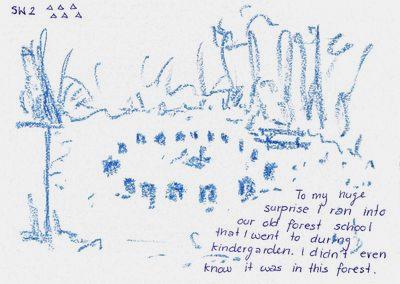 SW2
To my huge
surprise I ran into
our old forest school
that I went to during
kindergarden. I didn't even
know it was in this forest.